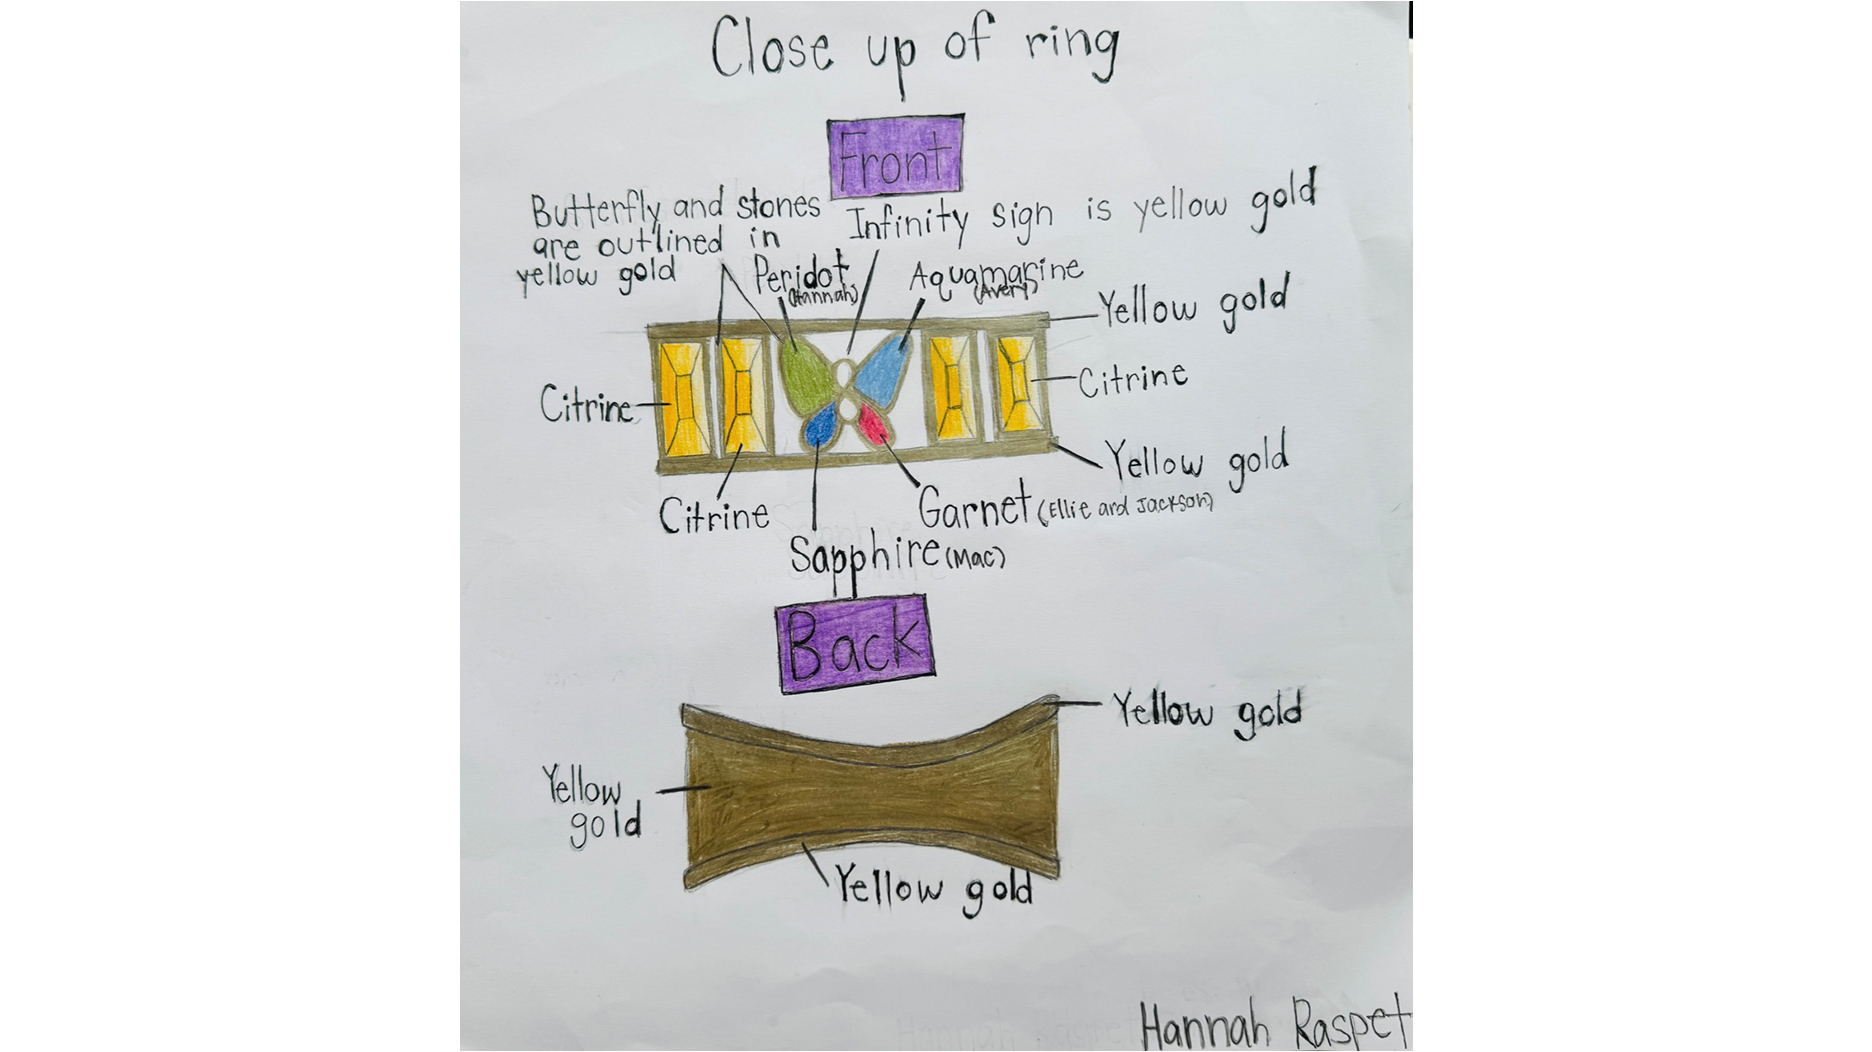 Close up of ring
Front
Butterfly and stones
are outlined in
yellow gold
Infinity sign is yellow gold
Peridot
(Hannah)
Aquamarine
(Avery)
Yellow gold
Citrine
Citrine
Yellow gold
Citrine
Garnet (Ellie and Jackson)
Sapphire (Mac)
Back
Yellow gold
Yellow
gold
Yellow gold
Hannah Raspet